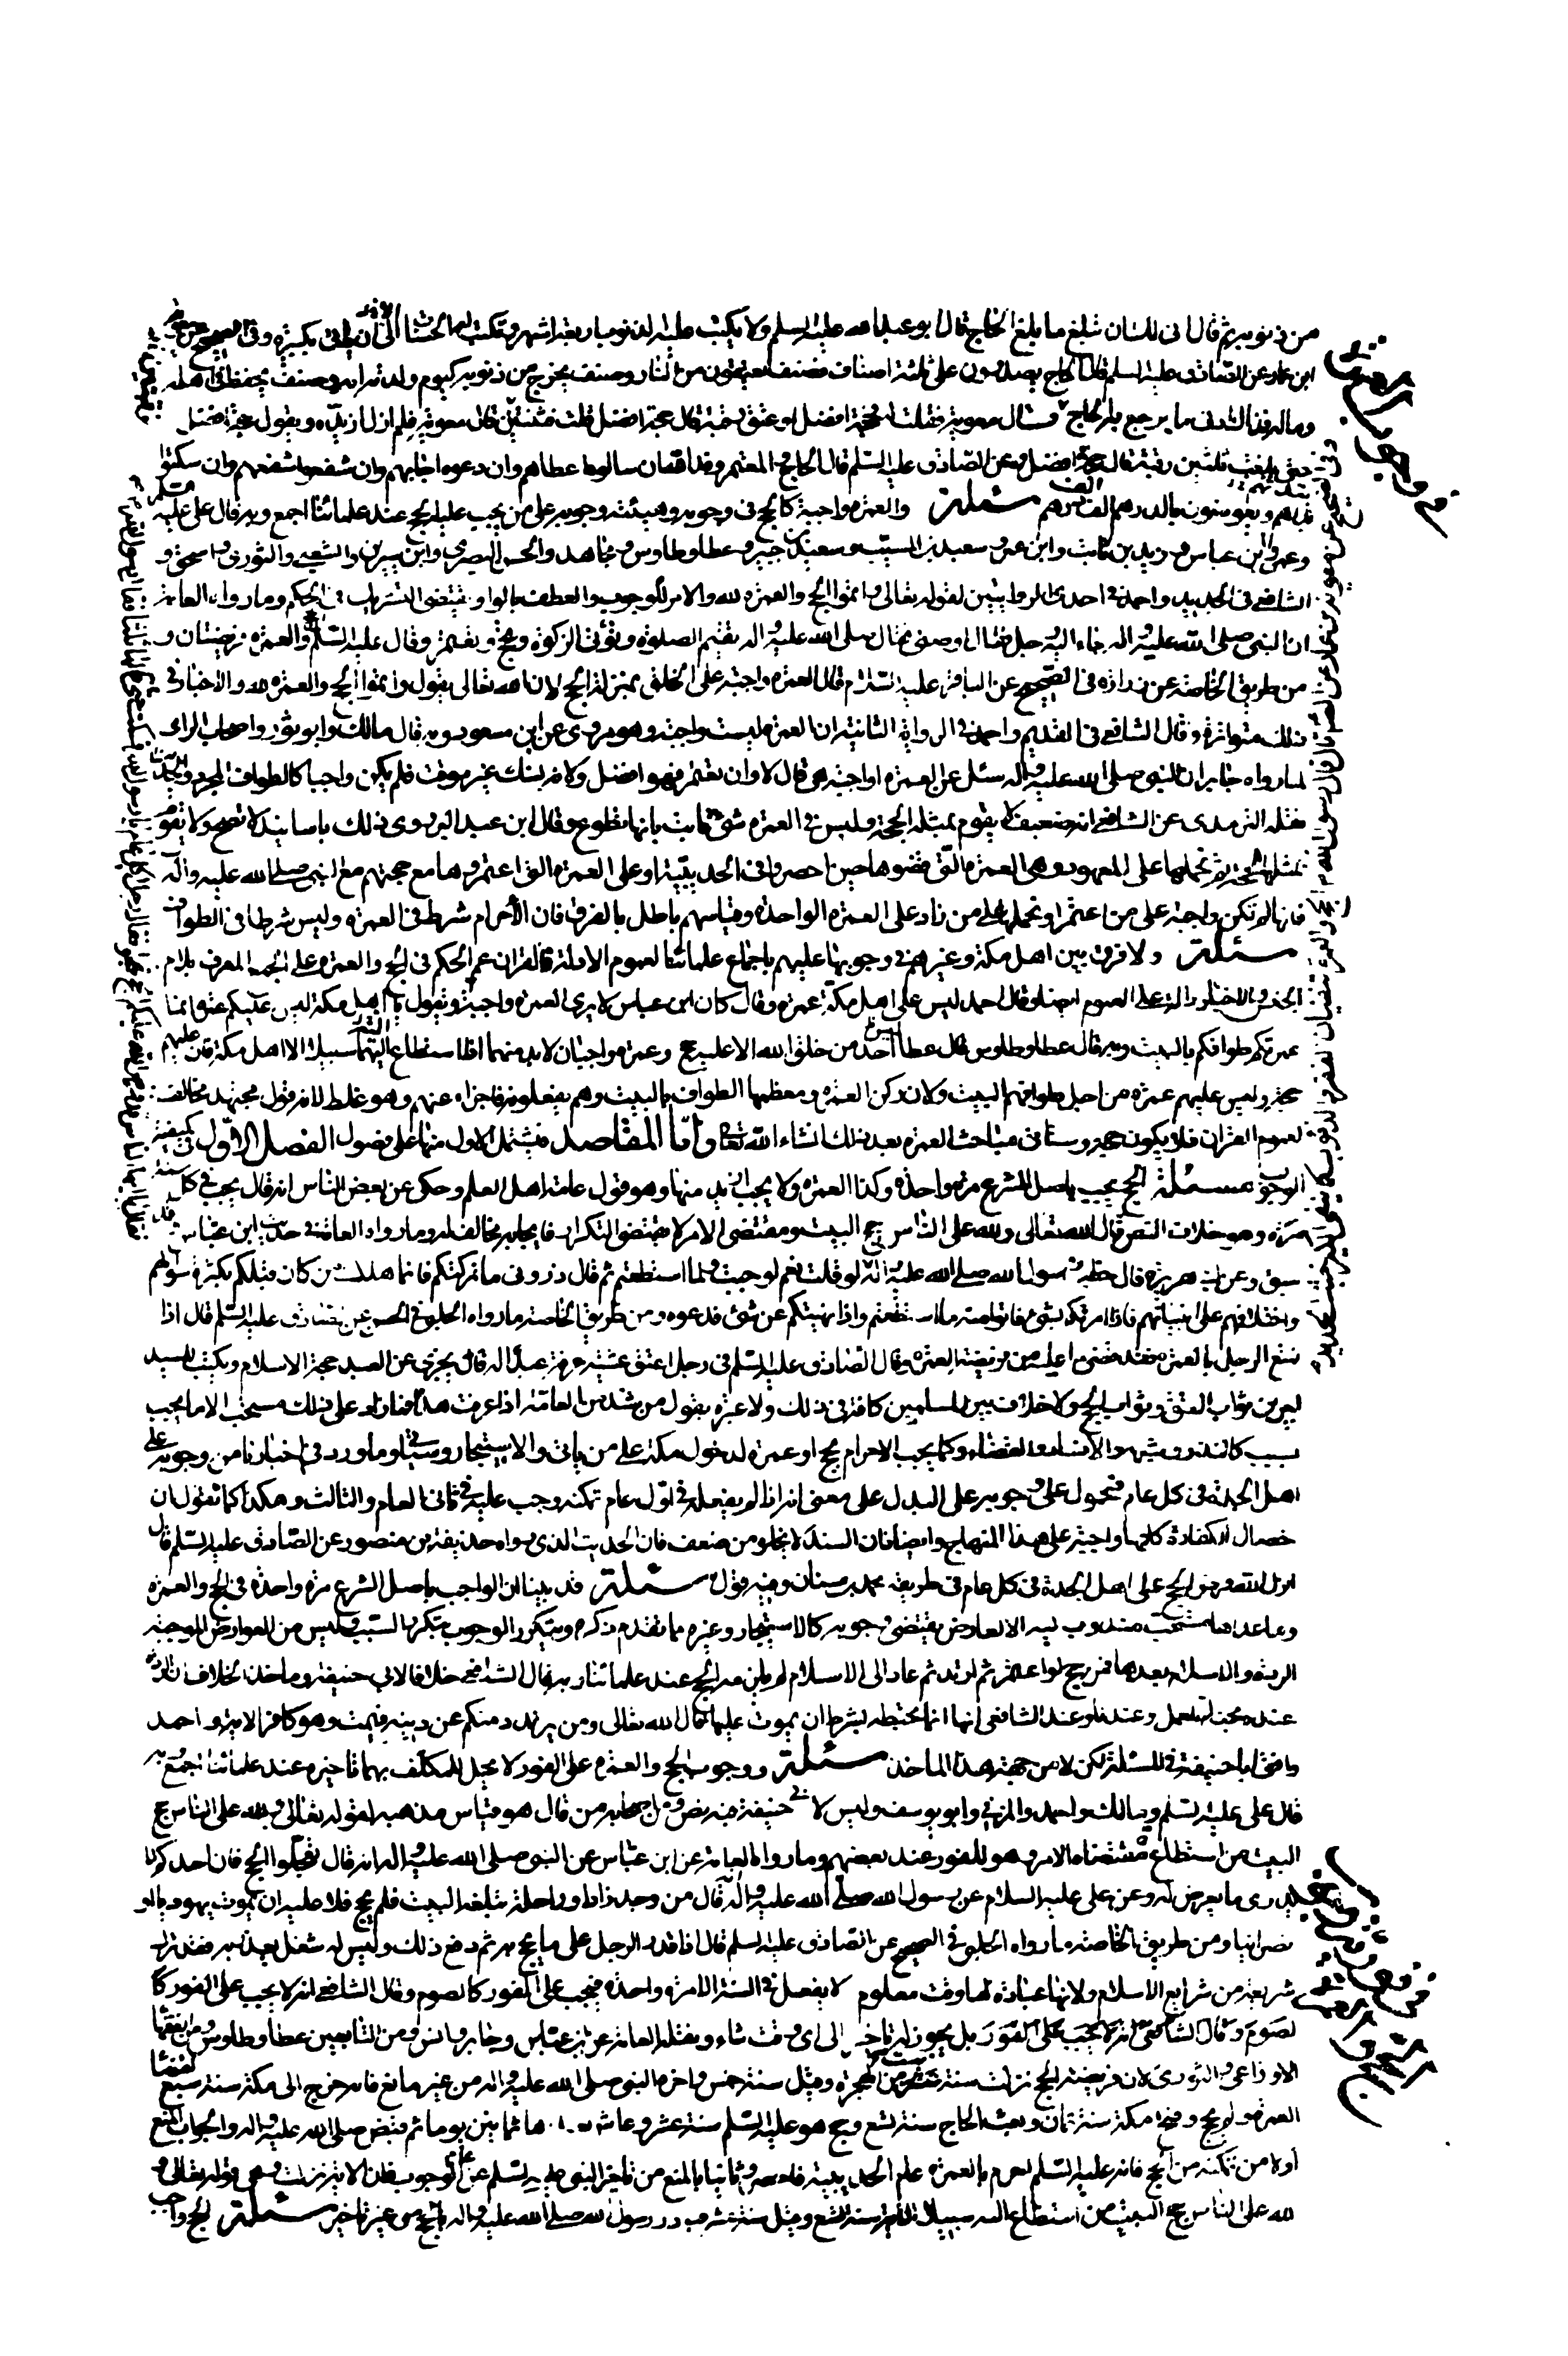 من ذنوبه ثم قال انى لك ان تبلغ ما يبلغ الحاج قال ابو عبد الله عليه السلم ولا يكتب عليه الذنوب اربعة اشهر وتكتب له الحسنات الا ان ياتى بكبيرة وفى الصحيح عن معوية
ابن عمار عن الصادق عليه السلم قال الحاج يصدرون على ثلثة اصناف فصنف يعتقون من النار وصنف يخرج من ذنوبه كيوم ولدته امه وصنف يحفظ فى اهله
وماله فذلك ادنى ما يرجع به الحاج وسال معوية فقلت له حجة افضل او عتق رقبة قال حجة افضل قلت فثنتين قال معوية فلم ازل ازيده ويقول حجة افضل
حتى بلغت ثلثين رقبة قال حجة افضل وعن الصادق عليه السلم قال الحاج والمعتمر وفد الله ان سالوه اعطاهم وان دعوه اجابهم وان شفعوا شفعهم وان سكتوا
بداهم ويعوضون بالدرهم الف الف درهم مسئلة والعمرة واجبة كالحج فى وجوبه وهيئة وجوبه على من يجب عليه الحج عند علمائنا اجمع وبه قال على عليه السلم
وعمر وابن عباس وزيد بن ثابت وابن عمر وسعيد بن المسيب وسعيد بن جبير وعطا وطاوس ومجاهد والحسن البصرى وابن سيرين والشعبى والثورى واسحق و
الشافعى فى الجديد واحمد فى احدى الروايتين لقوله تعالى واتموا الحج والعمرة لله والامر للوجوب والعطف بالواو يقتضى التشريك فى الحكم وما رواه العامة
ان النبى صلى الله عليه واله جاء اليه رجل فقال اوصنى فقال صلى الله عليه واله تقيم الصلوة وتؤتى الزكوة وتحج وتعتمر وقال عليه السلم الحج والعمرة فريضتان و
من طريق الخاصة عن زرارة فى الصحيح عن الباقر عليه السلام قال العمرة واجبة على الخلق بمنزلة الحج لان الله تعالى يقول واتموا الحج والعمرة لله والاخبار فى
ذلك متواترة وقال الشافعى فى القديم واحمد فى الرواية الثانية ان العمرة ليست واجبة وهو مروى عن ابن مسعود وبه قال مالك وابو ثور واصحاب الراى
لما رواه جابر ان النبى صلى الله عليه واله سئل عن العمرة اواجبة هى قال لا وان تعتمر فهو افضل ولانه نسك غير موقت فلم يكن واجبا كالطواف المجرد والحديث
نقله الترمذى عن الشافعى انه ضعيف لا يقوم بمثله الحجة وليس فى العمرة شئ ثابت بانها تطوع وقال ابن عبد البر روى ذلك باسانيد لا تصح ولا تقوم
بمثلها الحجة ثم نحملها على المعهود وهى العمرة التى قضوها حين احصروا فى الحديبية او على العمرة التى اعتمروها مع حجتهم مع النبى صلى الله عليه واله
فانها لم تكن واجبة على من اعتمر او نحملها على من زاد على العمرة الواحدة وقياسهم باطل بالفرق فان الاحرام شرط فى العمرة وليس شرطا فى الطواف
مسئلة ولا فرق بين اهل مكة وغيرهم فى وجوبها عليهم باجماع علمائنا لعموم الادلة فالقران عمم الحكم فى الحج والعمرة على الجمع المعرف بلام
الجنس والاخبار دالة على العموم ايضا وقال احمد ليس على اهل مكة عمرة وقال كان ابن عباس لا يرى العمرة واجبة ويقول يا اهل مكة ليس عليكم عمرة انما
عمرتكم طوافكم بالبيت وبه قال عطا وطاوس قال عطا ليس احد من خلق الله الا عليه حج وعمرة واجبتان لا بد منهما لمن استطاع اليهما سبيلا الا اهل مكة فان عليهم
حجة وليس عليهم عمرة من اجل طوافهم بالبيت ولان ركن العمرة ومعظمها الطواف بالبيت وهم يفعلونه فاجزاه عنهم وهو غلط لانه قول مجتهد مخالف
لعموم القران فلا يكون حجة وستاتى مباحث العمرة بعد ذلك انشاء الله تعالى واما المقاصد فيشتمل الاول منها على فصول الفصل الاول فى كيفية
الوجوب مسئلة الحج يجب باصل الشرع مرة واحدة وكذا العمرة ولا يجب ازيد منها وهو قول عامة اهل العلم وحكى عن بعض الناس انه قال يجب فى كل سنة
مرة وهو خلاف النص قال الله تعالى ولله على الناس حج البيت ومقتضى الامر لا يقتضى التكرار فايجابه مخالف له وما رواه العامة فى حديث ابن عباس وقد
سبق وعن ابى هريرة قال خطبنا رسول الله صلى الله عليه واله لو قلت نعم لوجبت ولما استطعتم ثم قال ذرونى ما تركتكم فانما هلك من كان قبلكم بكثرة سؤالهم
واختلافهم على انبيائهم فاذا امرتكم بشئ فاتوا منه ما استطعتم واذا نهيتكم عن شئ فدعوه ومن طريق الخاصة ما رواه الحلبى فى الحسن عن الصادق عليه السلم قال اذا
تمتع الرجل بالعمرة فقد قضى ما عليه من فريضة العمرة وقال الصادق عليه السلم فى رجل اعتق عشية عرفة عبدا له قال يجزى عن العبد حجة الاسلام ويكتب للسيد
اجرين ثواب العتق وثواب الحج ولا خلاف بين المسلمين كافة فى ذلك ولا عبرة بقول من شذ من العامة اذا عرفت هذا فما زاد على ذلك مستحب الا ما يجب
بسبب كالنذر وشبهه والافساد والقضاء وكما يجب الاحرام بحج او عمرة لدخول مكة على من ياتى والاستيجار وسياتى وما ورد فى اخبارنا من وجوبه على
اهل الجدة فى كل عام فمحمول على وجوبه على البدل على معنى انه اذا لم يفعله فى اول عام تمكنه وجب عليه فى ثانى العام والثالث وهكذا كما تقول ان
خصال الكفارة كلها واجبة على هذا المنهاج وايضا فان السند لا يخلو من ضعف فان الحديث الذى رواه حذيفة بن منصور عن الصادق عليه السلم قال
انزل الله فرض الحج على اهل الجدة فى كل عام فى طريقه محمد بن سنان وفيه قول مسئلة قد بينا ان الواجب باصل الشرع مرة واحدة فى الحج والعمرة
وما عداها مستحب مندوب اليه الا لعارض يقتضى وجوبه كالاستيجار وغيره مما تقدم ذكره ويتكرر الوجوب بتكرر السبب وليس من العوارض الموجبة
الردة والاسلام بعدها فمن حج او اعتمر ثم ارتد ثم عاد الى الاسلام لم يلزمه الحج عند علمائنا وبه قال الشافعى خلافا لابى حنيفة وماخذ الخلاف ان الردة
عنده محبطة للعمل وعندنا وعند الشافعى انها انما تحبطه بشرط ان يموت عليها قال الله تعالى ومن يرتدد منكم عن دينه فيمت وهو كافر الاية واحمد
وافق ابا حنيفة فى المسئلة لكن لا من جهة هذا الماخذ مسئلة ووجوب الحج والعمرة على الفور لا يحل للمكلف بهما تاخيره عند علمائنا اجمع وبه
قال على عليه السلم ومالك واحمد والمزنى وابو يوسف وليس لابى حنيفة فيه نص ومن اصحابه من قال هو قياس مذهبه لقوله تعالى ولله على الناس حج
البيت من استطاع مقتضاه الامر وهو للفور عند بعضهم وما رواه العامة عن ابن عباس عن النبى صلى الله عليه واله انه قال تعجلوا الحج فان احدكم لا
يدرى ما يعرض له وعن على عليه السلام عن رسول الله صلى الله عليه واله قال من وجد زادا وراحلة تبلغه البيت فلم يحج فلا عليه ان يموت يهوديا او
نصرانيا ومن طريق الخاصة ما رواه الحلبى فى الصحيح عن الصادق عليه السلم قال اذا قدر الرجل على ما يحج به ثم دفع ذلك وليس له شغل يعذره به فقد ترك
شريعة من شرايع الاسلام ولانها عبادة لها وقت معلوم لا يفعل فى السنة الا مرة واحدة فيجب على الفور كالصوم وقال الشافعى انه لا يجب على الفور كا
لصوم وقال الشافعى انه لا يجب على الفور بل يجوز له تاخيره الى اى وقت شاء ونقله العامة عن ابن عباس وجابر وانس ومن التابعين عطا وطاوس ومن الفقهاء
الاوزاعى والثورى لان فريضة الحج نزلت سنة ست من الهجرة وقيل سنة خمس واخره النبى صلى الله عليه واله من غير مانع فانه خرج الى مكة سنة سبع لقضاء
العمرة ولم يحج وفتح مكة سنة ثمان وبعث الحاج سنة تسع وحج هو عليه السلم سنة عشر وعاش بعدها ثمانين يوما ثم قبض صلى الله عليه واله والجواب المنع
اولا من تمكنه من الحج فانه عليه السلم احرم بالعمرة عام الحديبية فاحصر وثانيا بالمنع من تاخير النبى عليه السلم عن عام الوجوب فان الاية نزلت وهى قوله تعالى و
لله على الناس حج البيت من استطاع اليه سبيلا سنة تسع وقيل سنة عشر فبادر رسول الله صلى الله عليه واله بالحج من غير تاخير مسئلة الحج واجب
فى وجوب العمرة